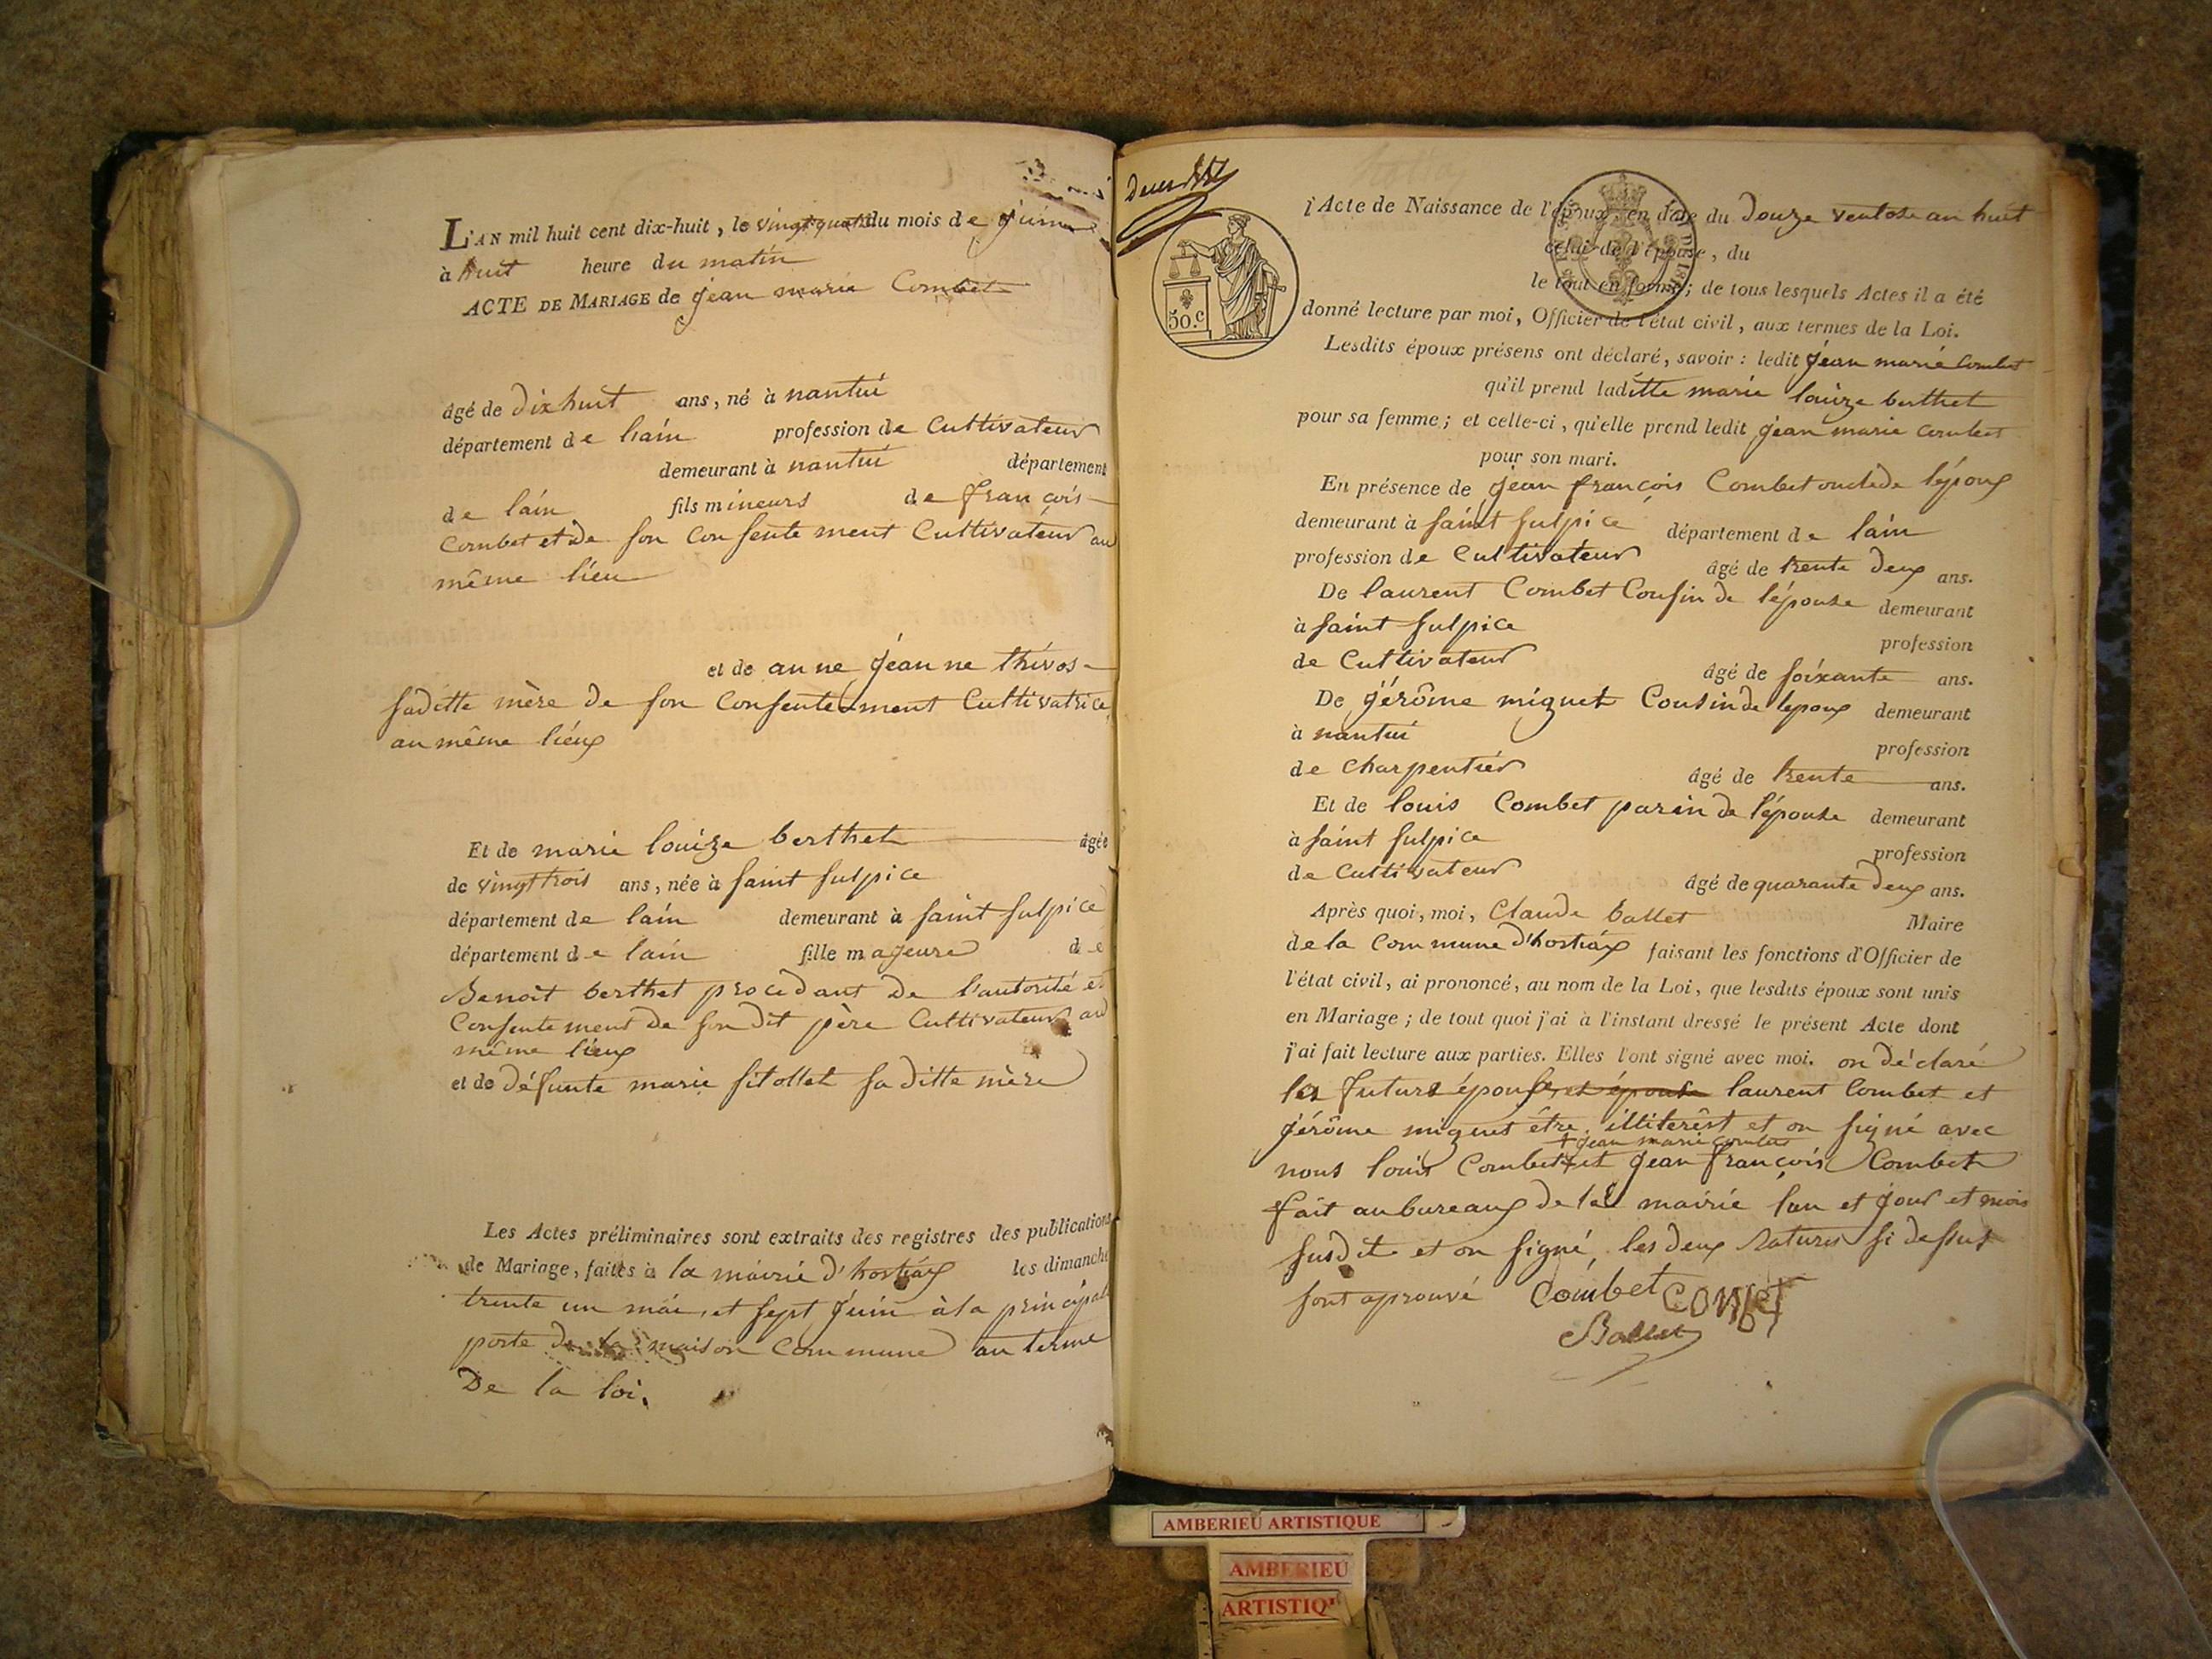 L'AN mil huit cent dix-huit, le vingt quatre du mois de juin
à huit heure du matin
ACTE DE MARIAGE de jean marie Combet
âgé de dix huit ans, né à nantui
département de lain profession de Cultivateur
demeurant à nantui département
de lain fils mineurs de françois
Combet et de son Consentement Cultivateur au
même lieu
et de anne jeanne thivos
saditte mère de son Consentement Cultivatrice
au même lieux
Et de marie louize berthet âgée
de vingt trois ans, née à saint sulpice
département de lain demeurant à saint sulpice
département de lain fille majeure de
Benoit berthet procédant de l'autorité et
Consentement de son dit père Cultivateur au
même lieux
et de défunte marie sitollet sa ditte mère
Les Actes préliminaires sont extraits des registres des publications
de Mariage, faites à la mairie d'hostiax les dimanche
trente un mai, et sept juin à la principale
porte de la maison Commune au terme
De la loi.
50.c
l'Acte de Naissance de l'époux, en date du douze ventose an huit
celui de l'épouse, du
le tout en forme; de tous lesquels Actes il a été
donné lecture par moi, Officier de l'état civil, aux termes de la Loi.
Lesdits époux présens ont déclaré, savoir : ledit jean marie Combet
qu'il prend laditte marie louize berthet
pour sa femme; et celle-ci, qu'elle prend ledit jean marie Combet
pour son mari.
En présence de jean françois Combet oncle de l'époux
demeurant à saint sulpice département de lain
profession de Cultivateur âgé de trente deux ans.
De laurent Combet Cousin de l'épouse demeurant
à saint sulpice profession
de Cultivateur âgé de soixante ans.
De jérôme miguet Cousin de lepoux demeurant
à nantui profession
de Charpentier âgé de trente ans.
Et de louis Combet parin de l'épouse demeurant
à saint sulpice profession
de Cultivateur âgé de quarante deux ans.
Après quoi, moi, Claude ballet Maire
de la Commune d'hostiax faisant les fonctions d'Officier de
l'état civil, ai prononcé, au nom de la Loi, que lesdits époux sont unis
en Mariage; de tout quoi j'ai à l'instant dressé le présent Acte dont
j'ai fait lecture aux parties. Elles l'ont signé avec moi. on déclaré
la future épouse, et épouse laurent Combet et
jérôme miguet être illiterêst et on signé avec
+ jean marie combet
nous louis Combet + et jean françois Combet
fait au bureaux de la mairie l'an et jour et mois
susdit et on signé, les deux ratures si dessus
sont aprouvé Combet COMBET
Ballet
AMBERIEU ARTISTIQUE
AMBERIEU
ARTISTIQ